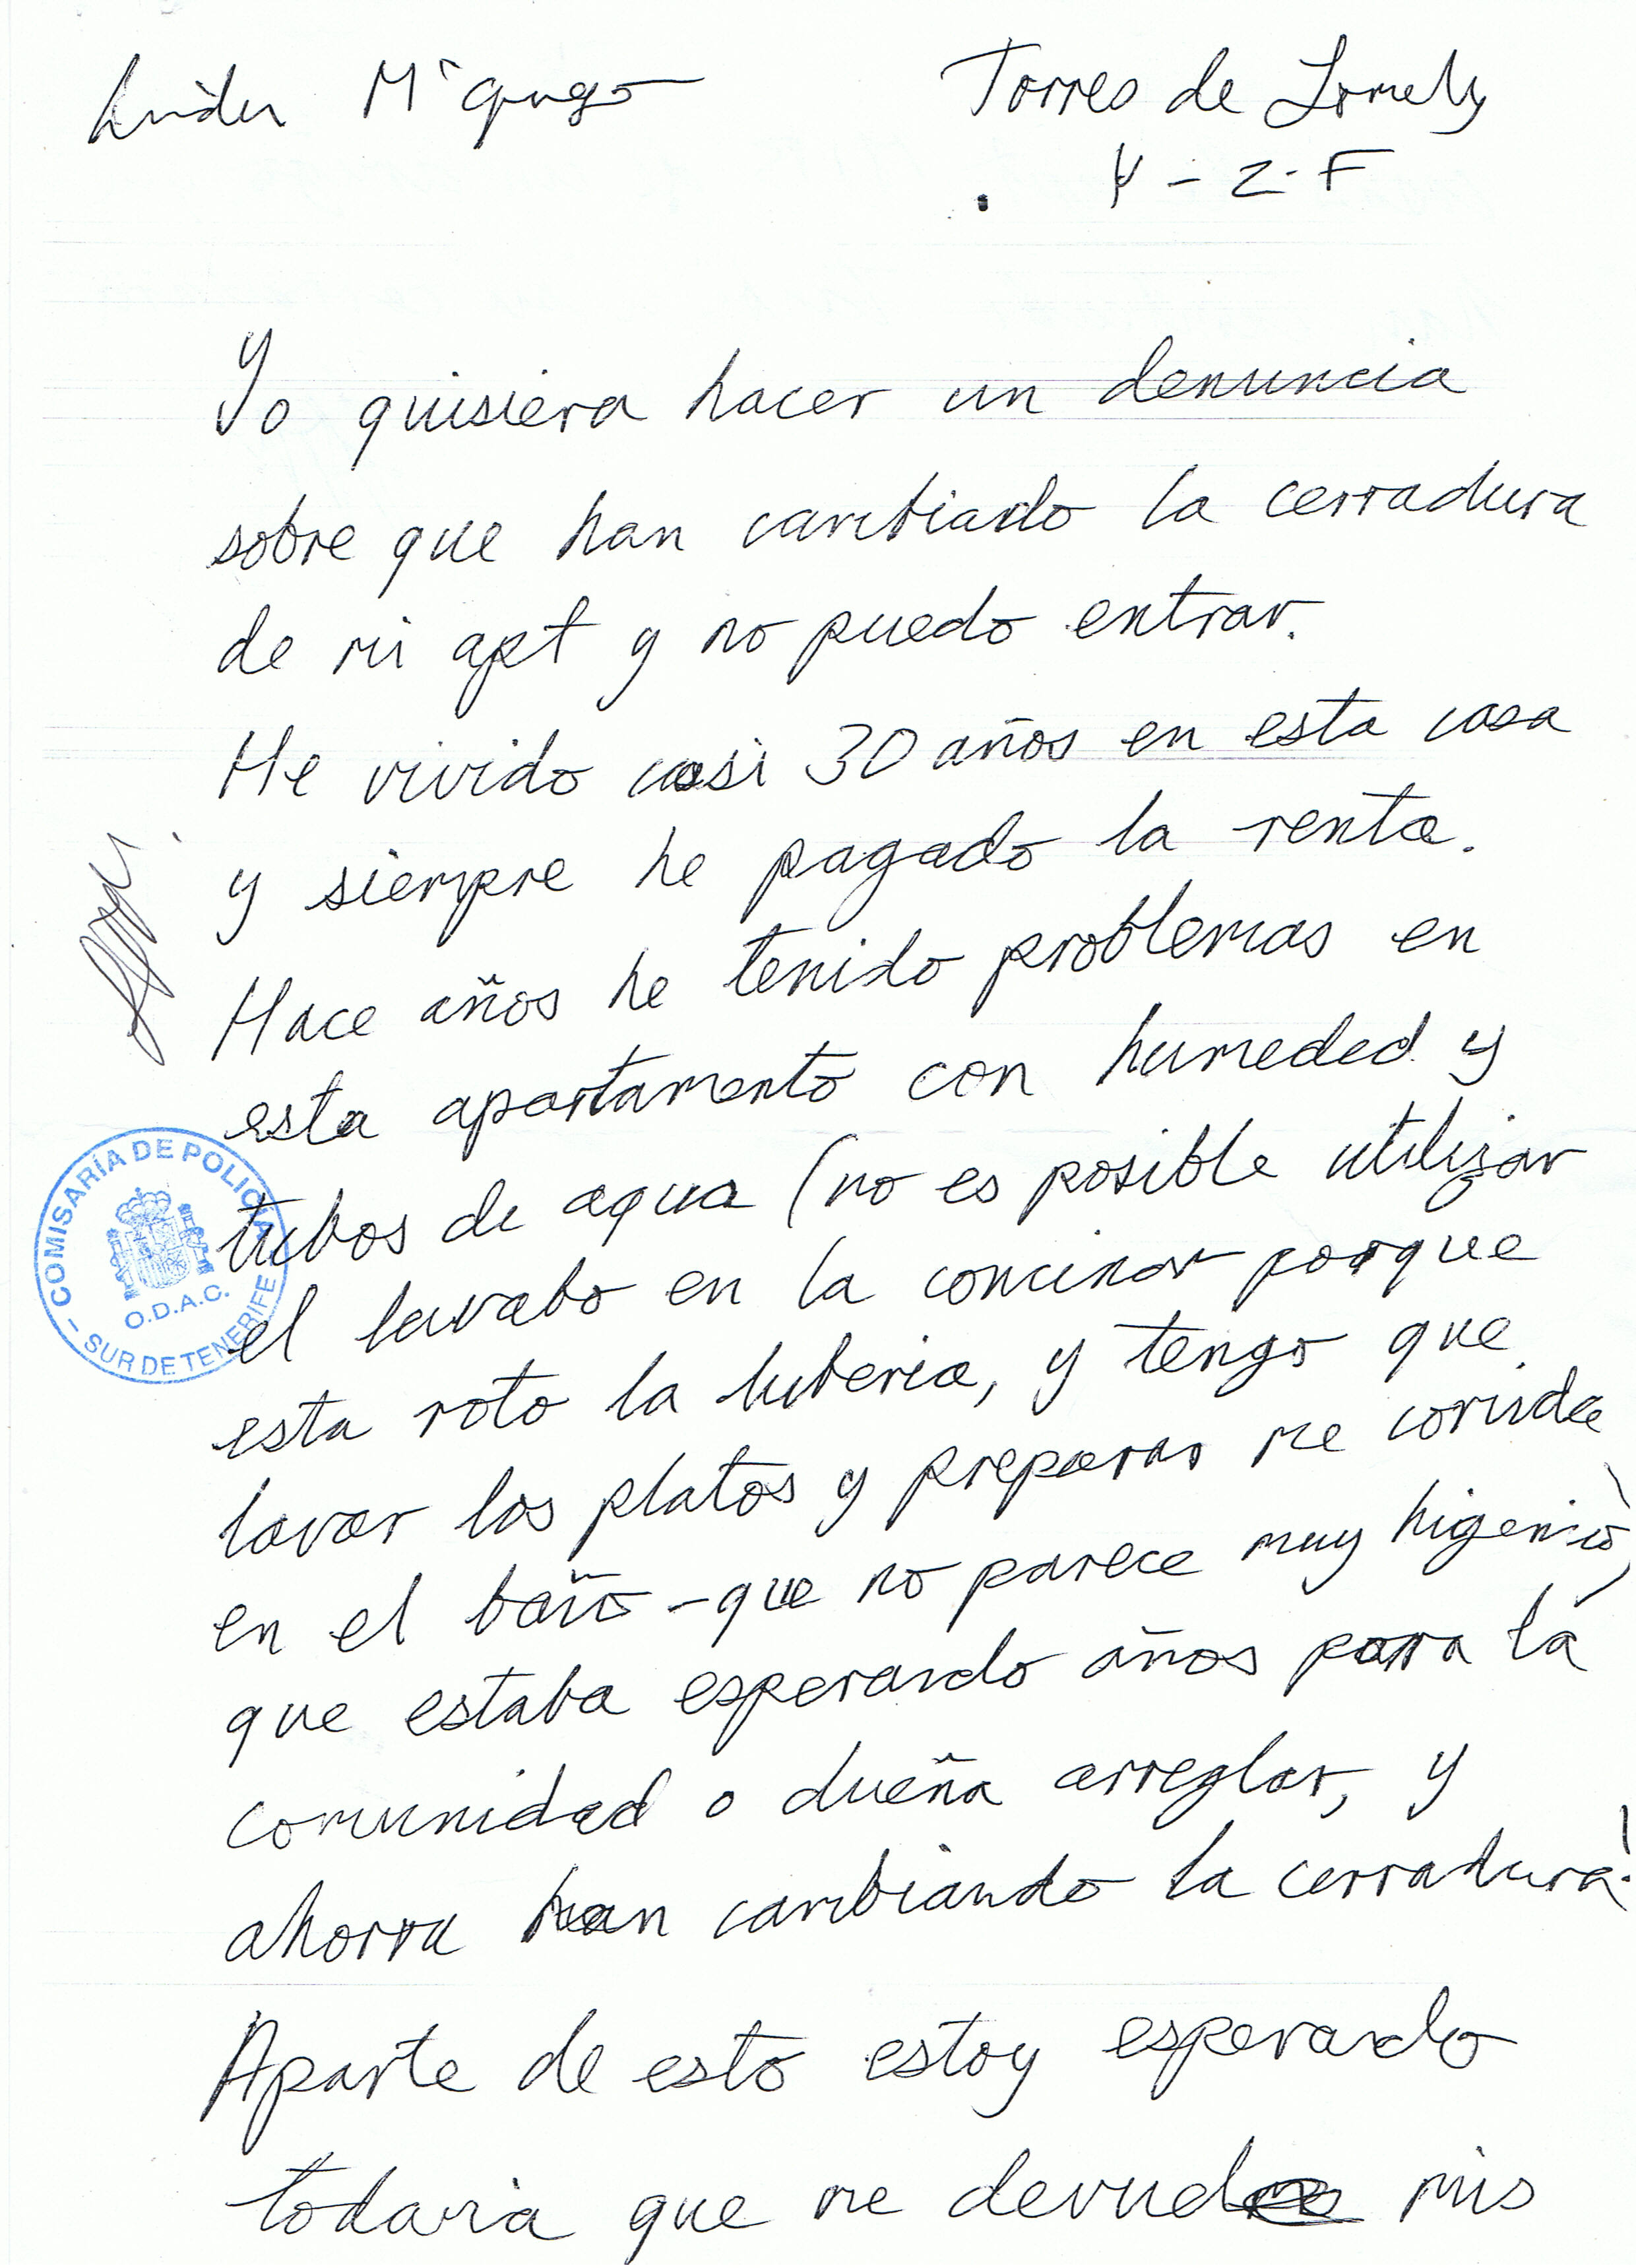 Torres de
- 2. F
Yo quisiera hacer un denuncia
sobre que han cambiado la cerradura
de mi apt y no puedo entrar.
He vivido casi 30 años en esta casa
y siempre he pagado la renta.
Hace años he tenido problemas en
esta apartamento con humeded y
tubos de agua (no es posible utilizar
el lavabo en la concinar porque
esta roto la tuberia, y tengo que
lavar los platos y preparar me comida
en el baño - que no parece muy higenio)
que estaba esperando años para la
comunidad o dueña arreglar, y
ahorra han cambiando la cerradura!
Aparte de esto estoy esperando
todavia que me mis
COMISARÍA DE POLICÍA
O.D.A.C.
- SUR DE TENERIFE -